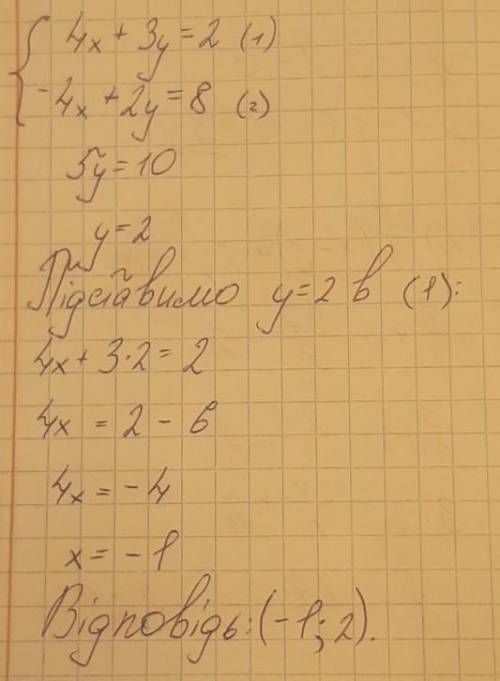 4x + 3y = 2 (1)
-4x + 2y = 8 (2)
5y = 10
y = 2
Підставимо y = 2 в (1):
4x + 3·2 = 2
4x = 2 - 6
4x = -4
x = -1
Відповідь: (-1; 2).